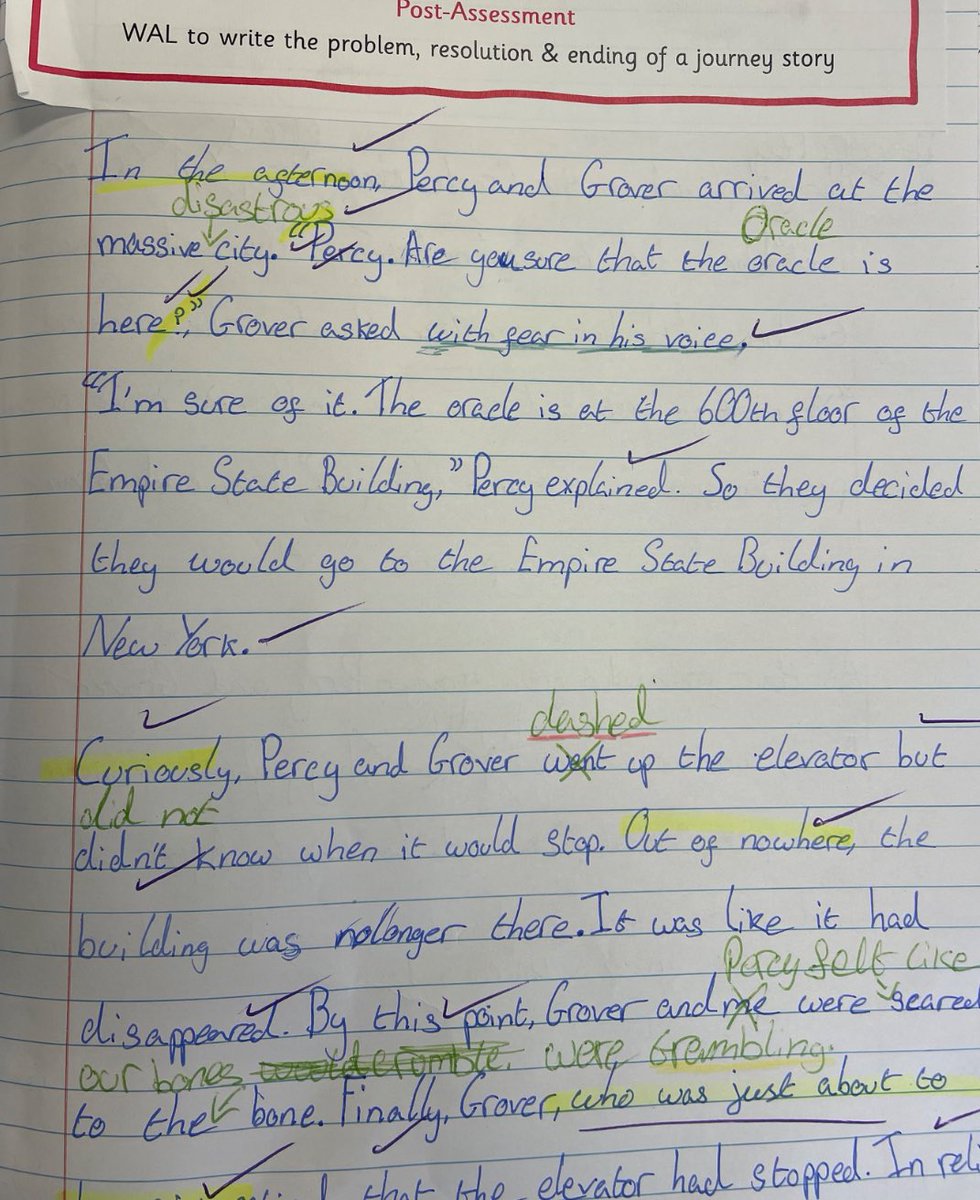 Post-Assessment
WAL to write the problem, resolution & ending of a journey story
In the afternoon, Percy and Grover arrived at the
disastrous
Oracle
massive city. "Percy. Are you sure that the oracle is
here?", Grover asked with fear in his voice.
"I'm sure of it. The oracle is at the 600th floor of the
Empire State Building," Percy explained. So they decided
they would go to the Empire State Building in
New York.
dashed
Curiously, Percy and Grover went up the elevator but
did not
didn't know when it would stop. Out of nowhere, the
building was no longer there. It was like it had
Percy felt like
disappeared. By this point, Grover and me were scared
our bones would crumble. were trembling.
to the bone. Finally, Grover, who was just about to
that the elevator had stopped. In